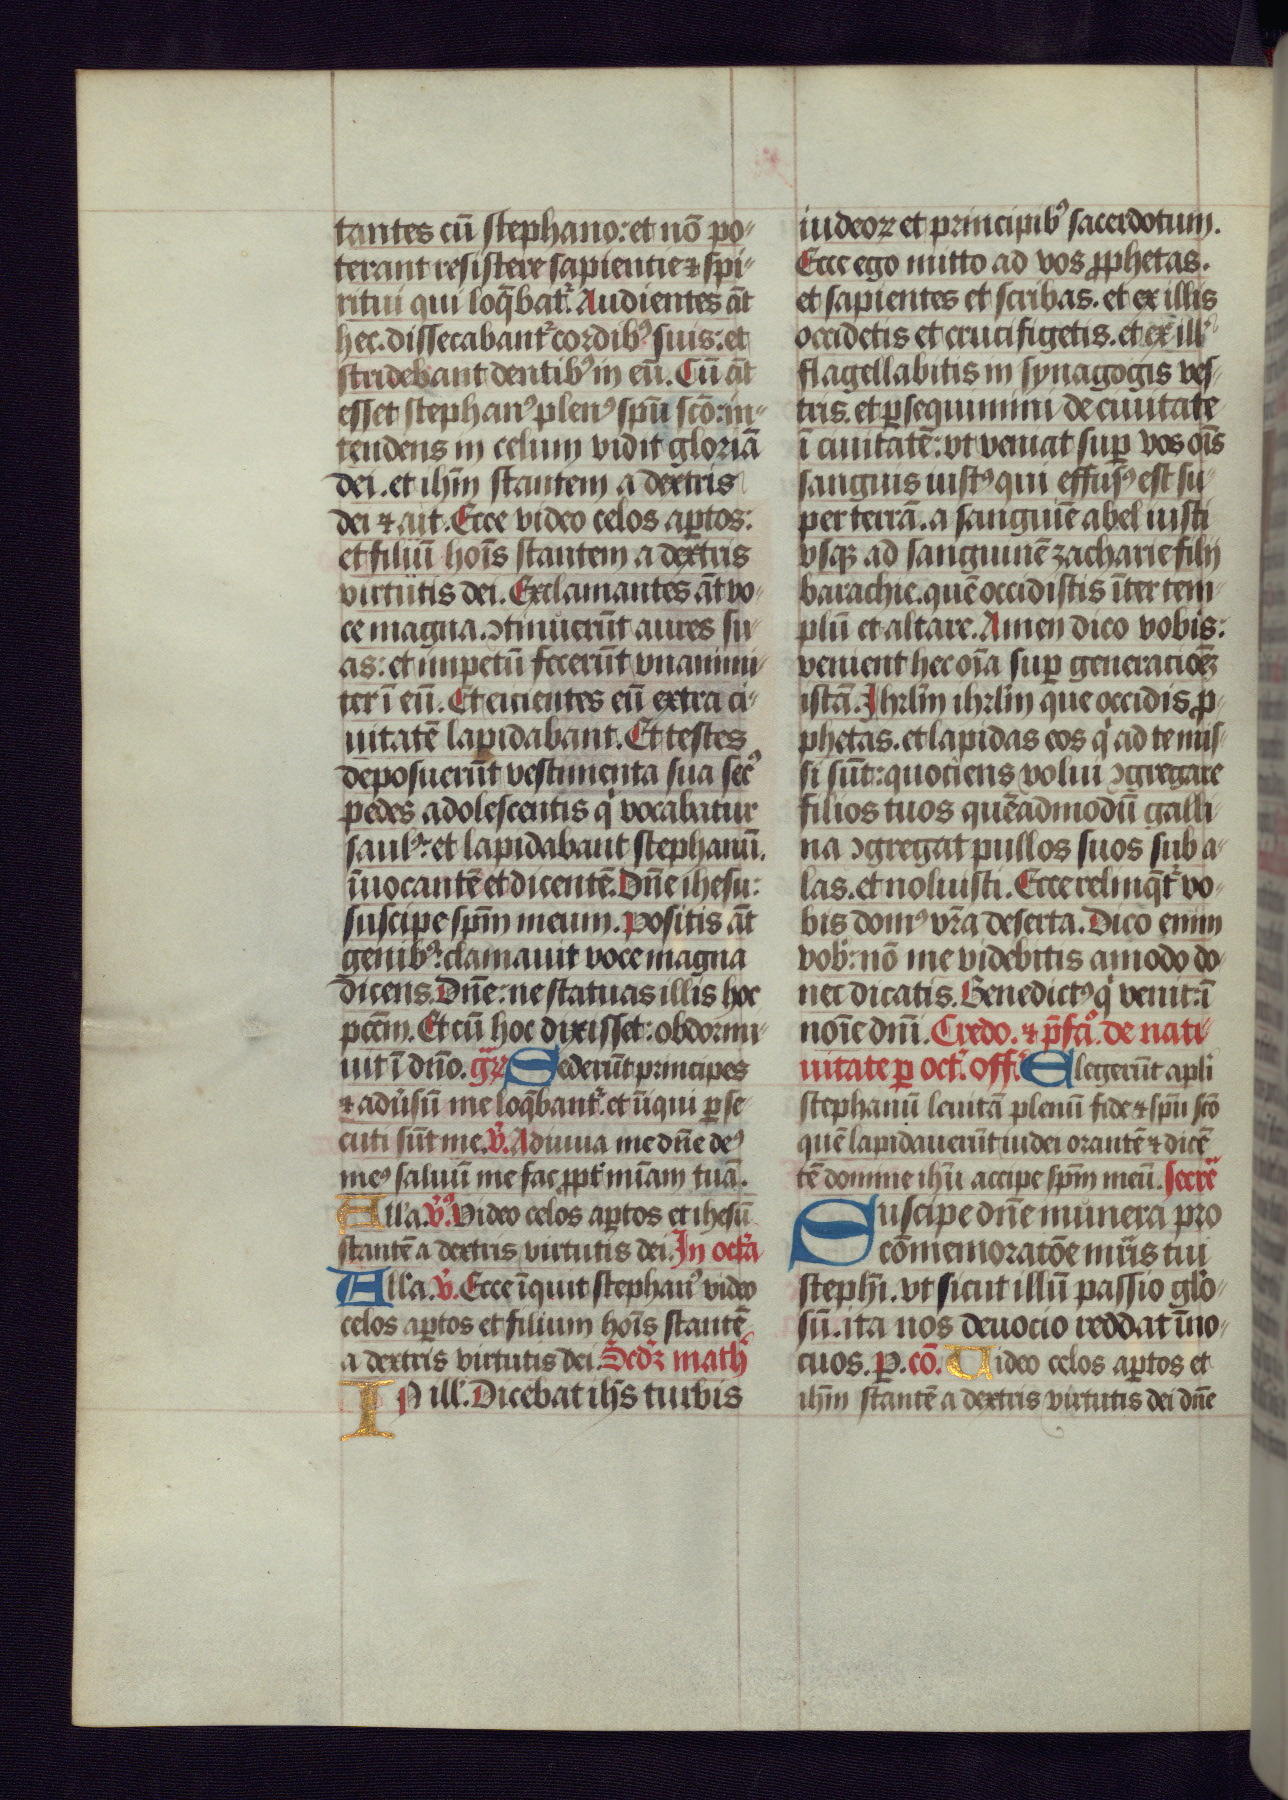 tantes cū stephano: et nō po-
terant resistere sapientie ⁊ spi-
ritui qui loq̄bat᷑. Audientes āt
hec. dissecabant᷑ cordibꝰ suis: et
stridebant dentibꝰ in eū. Cū āt
esset stephanꝰ plenꝰ spū scō: in-
tendens in celum vidit gloriā
dei. et ihm̄ stantem a dextris
dei ⁊ ait. Ecce video celos aꝑtos:
et filiū hoīs stantem a dextris
virtutis dei. Exclamantes āt vo-
ce magna. ꝯtinuerūt aures su-
as: et impetū fecerūt vnanimi-
ter ī eū. Et eicientes eū extra ci-
uitatē lapidabant. Et testes
deposuerūt vestimenta sua secꝰ
pedes adolescentis qͥ vocabatur
saulꝰ: et lapidabant stephanū.
īuocantē et dicentē. Dn̄e ihesu:
suscipe spm̄ meum. Positis āt
genibꝰ: clamauit voce magna
dicens. Dn̄e: ne statuas illis hoc
pccm̄. Et cū hoc dixisset: obdormi-
uit ī dn̄o. gr̄ Sederūt principes
⁊ adūsū me loq̄bant᷑. et īiqui ꝑse-
cuti sūt me. v̄. Adiuua me dn̄e deꝰ
meꝰ saluū me fac ꝓpt᷑ mīam tuā.
All'a. v̄ꝰ. Video celos aꝑtos et ihesū
stantē a dextris virtutis dei. In octā
All'a. v̄. Ecce īquit stephanꝰ video
celos aꝑtos et filium hoīs stantē
a dextris virtutis dei. Scdꝫ math'
IN ill'. Dicebat ihs̄ turbis
iudeoꝝ et principibꝰ sacerdotum.
Ecce ego mitto ad vos ꝓphetas.
et sapientes et scribas. et ex illis
occidetis et crucifigetis. et ex ill'
flagellabitis in synagogis ves-
tris. et ꝑsequimini de ciuitate
ī ciuitatē: vt veniat suꝑ vos oīs
sanguis iustꝰ qui effusꝰ est su-
per terrā. a sanguīe abel iusti
vsqꝫ ad sanguinē zacharie filij
barachie. quē occidistis īter tem-
plū et altare. Amen dico vobis:
venient hec oīa suꝑ generacioēꝫ
istā. Ihrlm̄ ihrlm̄ que occidis ꝓ-
phetas. et lapidas eos qͥ ad te mis-
si sūt: quociens volui ꝯgregare
filios tuos quēadmodū galli-
na ꝯgregat pullos suos sub a-
las. et noluisti. Ecce relinq̄t᷑ vo-
bis domꝰ vr̄a deserta. Dico enim
vob': nō me videbitis amodo do-
nec dicatis. Benedictꝰ qͥ venit: ī
noīe dn̄i. Credo. ⁊ p̄fcͥo. de nati-
uitate ꝑ oct'. off'. Elegerūt apli'
stephanū leuitā plenū fide ⁊ spū scō
quē lapidauerūt iudei orantē ⁊ dicē-
tē domine ihū accipe spm̄ meū. secrē
Suscipe dn̄e munera pro
cōmemoratōe mr̄is tui
stephī. vt sicut illū passio glo-
sū. ita nos deuocio reddat īno-
cuos. P. cō. Video celos aꝑtos et
ihm̄ stantē a dextris virtutis dei dn̄e